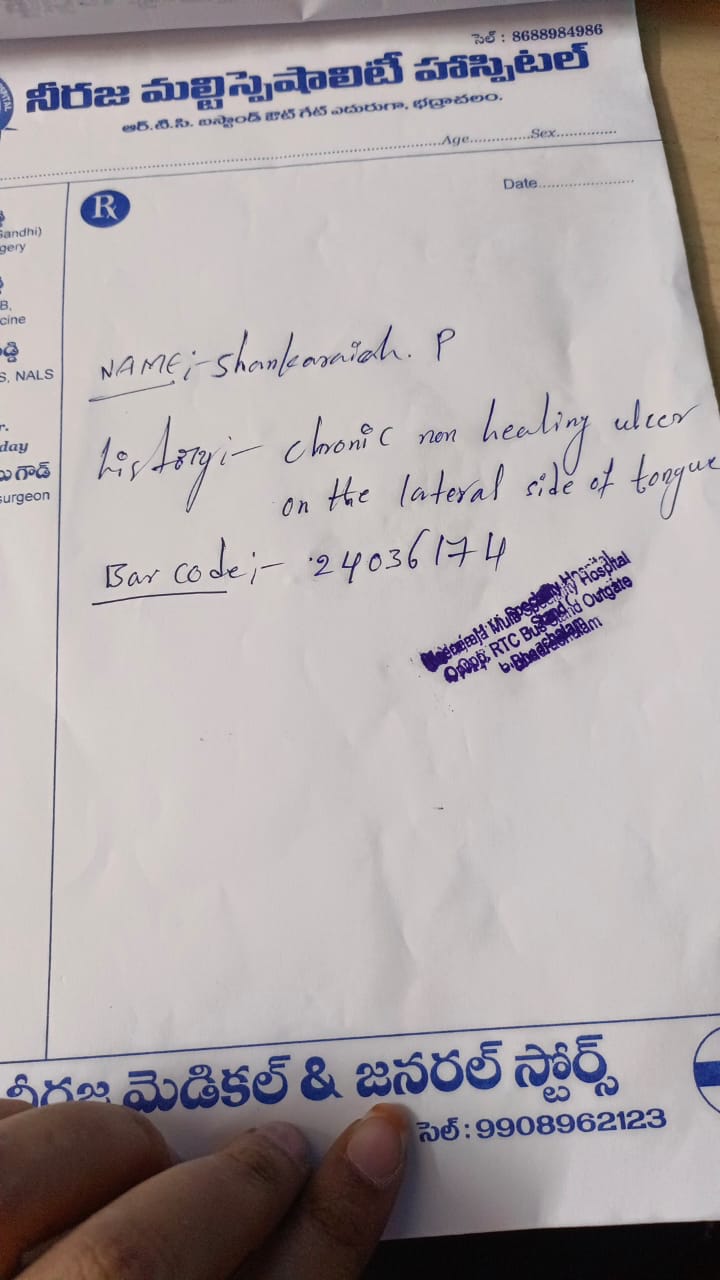 సెల్ : 8688984986
నీరజ మల్టిస్పెషాలిటీ హాస్పిటల్
ఆర్.టి.సి. బస్టాండ్ ఔట్ గేట్ ఎదురుగా, భద్రాచలం.
Age.............Sex.............
Date.....................
Rx
Gandhi)
gery
B,
cine
S, NALS
r.
day
గౌడ్
surgeon
NAME;- Shankaraiah. P
history;- chronic non healing ulcer
on the lateral side of tongue
Bar code;- 24036174
Hospital
Opp. RTC Bus Stand Outgate
Bhadrachalam
నీరజ మెడికల్ & జనరల్ స్టోర్స్
సెల్ : 9908962123